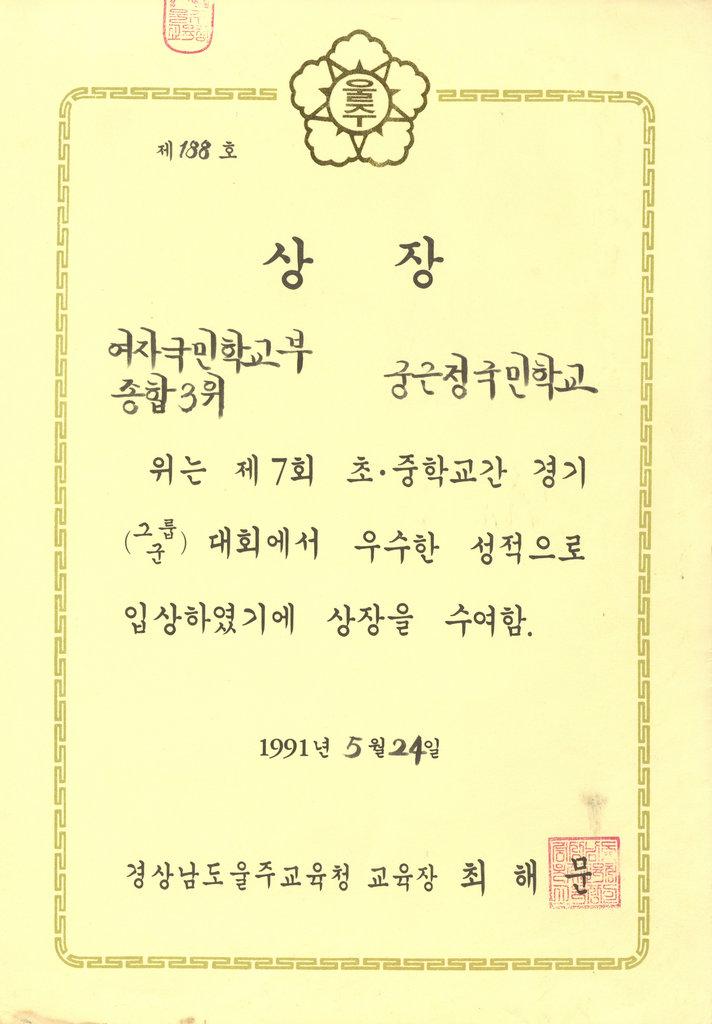 울주
제 188 호
상 장
여자국민학교부
종합 3위
궁근정국민학교
위는 제 7회 초·중학교간 경기
(그룹군) 대회에서 우수한 성적으로
입상하였기에 상장을 수여함.
1991년 5월 24일
경상남도울주교육청 교육장 최 해 문